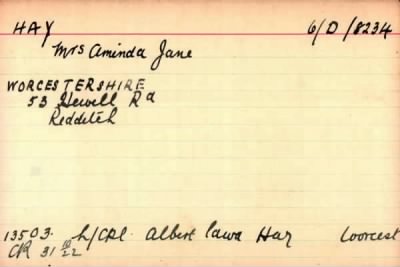 HAY 6/D/8234
Mrs Aminda Jane
WORCESTERSHIRE
53 Hewell Rd
Redditch
13503. L/Cpl. Albert Cawa Hay Worcest
CR 31 10/22